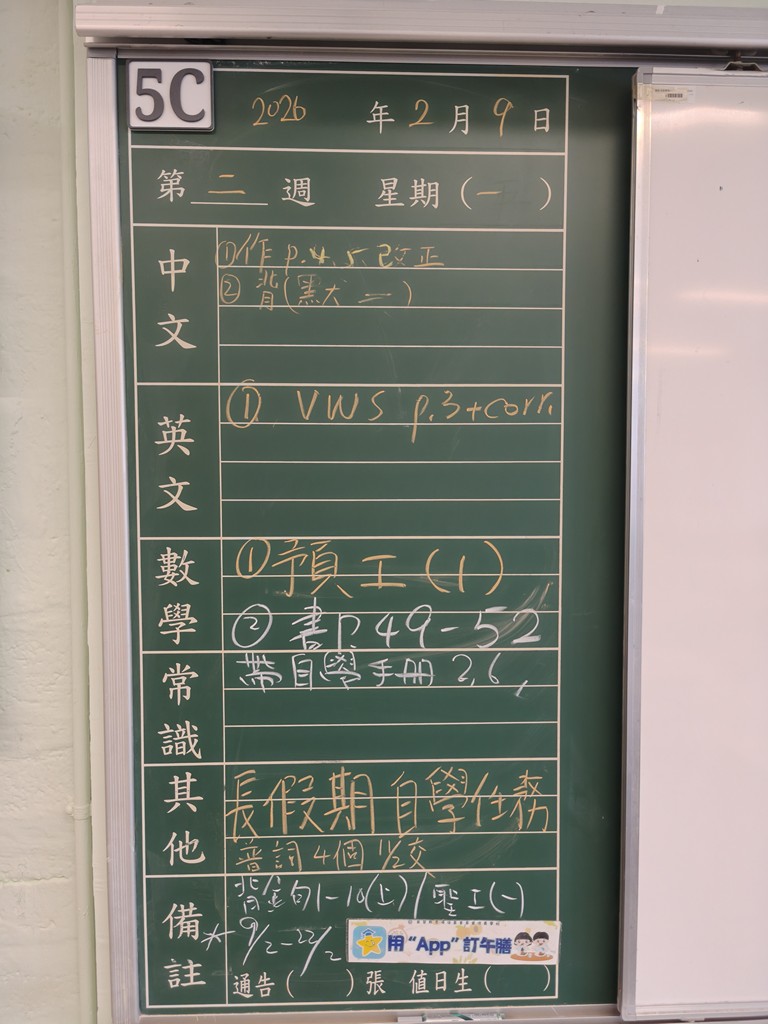 5C
2026 年 2 月 9 日
第 二 週 星期(一)
中文
①作 p.4.5.改正
②背(默二)
英文
① VWS p.3+corr.
數學
①預工(1)
②書P.49-52
常識
帶自學手冊 2,6,
其他
長假期自學任務
普詞4個 11/2交
備註
背金句1-10(上)/聖工(一)
* 9/2-22/2
用“App”訂午膳
通告( )張 值日生( )